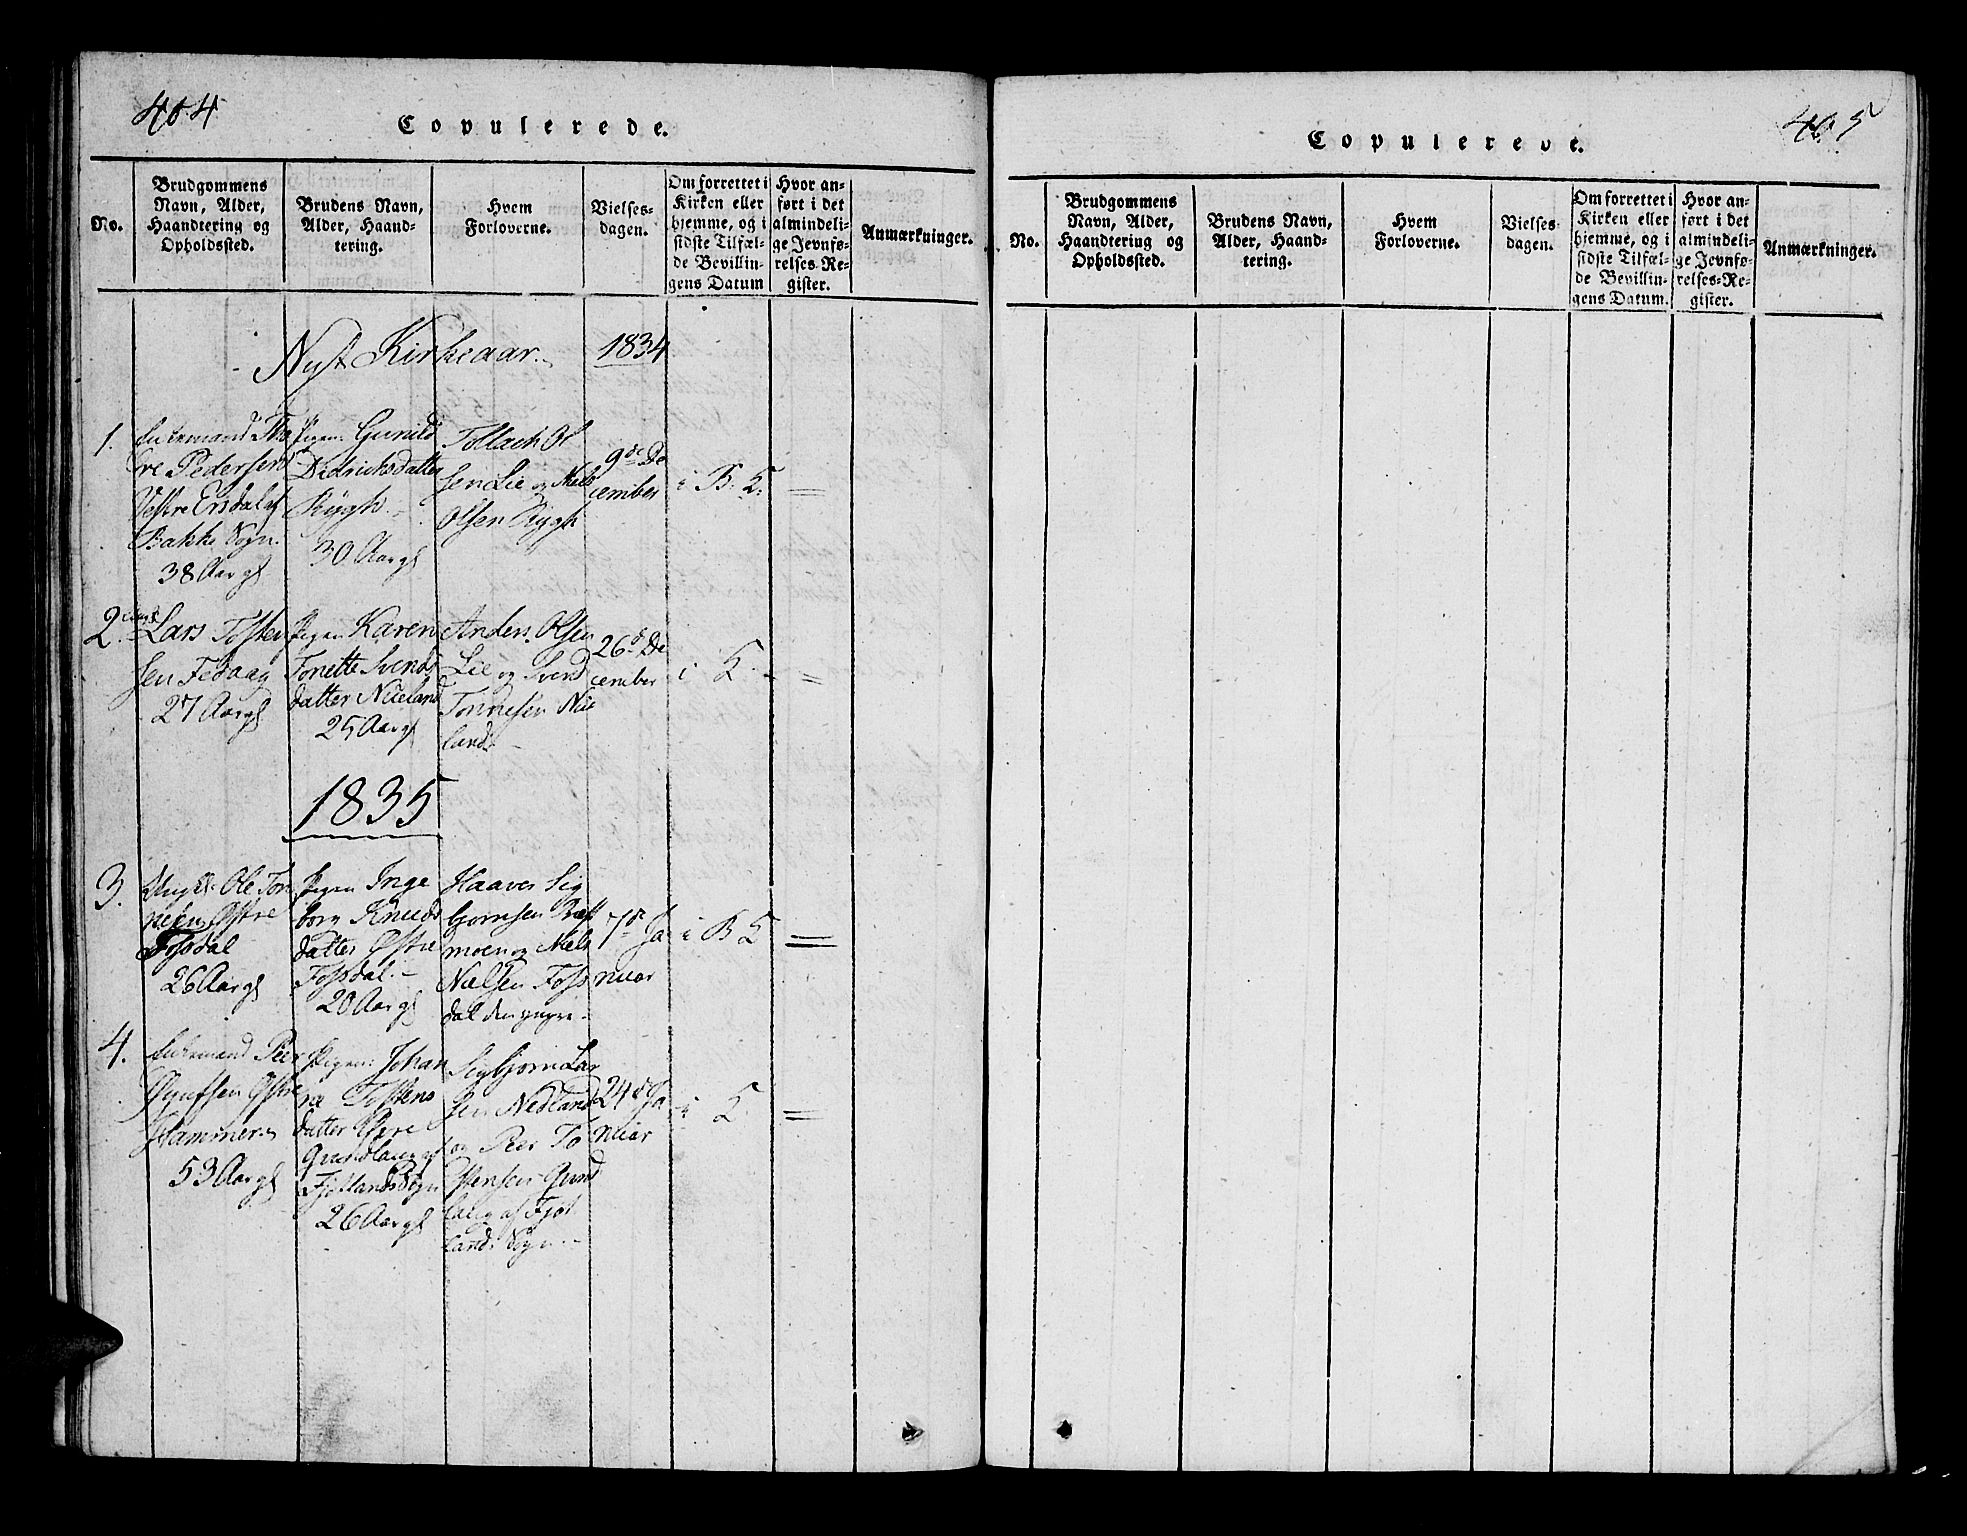 404
Copulerede.
No.
Brudgommens
Navn, Alder,
Haandtering og
Opholdssted.
Brudens Navn,
Alder, Haand-
tering.
Hvem
Forloverne.
Vielses-
dagen.
Om forrettet i
Kirken eller
hjemme, og i
sidste Tilfæl-
de Bevillin-
gens Datum
Hvor an-
ført i det
almindeli-
ge Jevnfø-
relses-Re-
gister.
Anmærkninger.
Nyt Kirkeaar. 1834
1.
Enkemand Tho
re Pedersen
Vestre Ersdal af
Bakke Sogn.
38 Aar gl
Pigen Gunild
Didrichsdatter
Rygh
30 Aar gl
Tollach Ol
sen Lie og Niels
Olsen Rygh
9de De
cember
i B: K:
=
2.
Lars Tosten
sen Fedaag
27 Aar gl
Pigen Karen
Tonette Svends
datter Nueland
25 Aar gl
Anders Olsen
Lie og Svend
Tonnesen Nue
land
26d De
cember
i K.
=
1835
3.
Ungk: Ole Ton
nesen Østre
Fossdal
26 Aar gl
Pigen Inge
borg Knuds
datter Østre
Fossdal.
20 Aar gl
Haaver Sig
bjornsen
moen og Niels
Nielsen Foss
dal den yngre
7de Ja
nuar
i B K
=
4.
Enkemand Peer
Østre
Hammeren
53 Aar gl
Pigen Johan
ne Tostens
datter Øvre
Qvindlaug af
Fjotlands Sogn
26 Aar gl
Sigbjorn Lar
sen Nedland
og Peer To
stensen Qvind
laug af Fjot
lands Sogn
24d Ja
nuar
i K.
=
405
Copulerede.
No.
Brudgommens
Navn, Alder,
Haandtering og
Opholdssted.
Brudens Navn,
Alder, Haand-
tering.
Hvem
Forloverne.
Vielses-
dagen.
Om forrettet i
Kirken eller
hjemme, og i
sidste Tilfæl-
de Bevillin-
gens Datum.
Hvor an-
ført i det
almindeli-
ge Jevnfø-
relses-Re-
gister.
Anmærkninger.